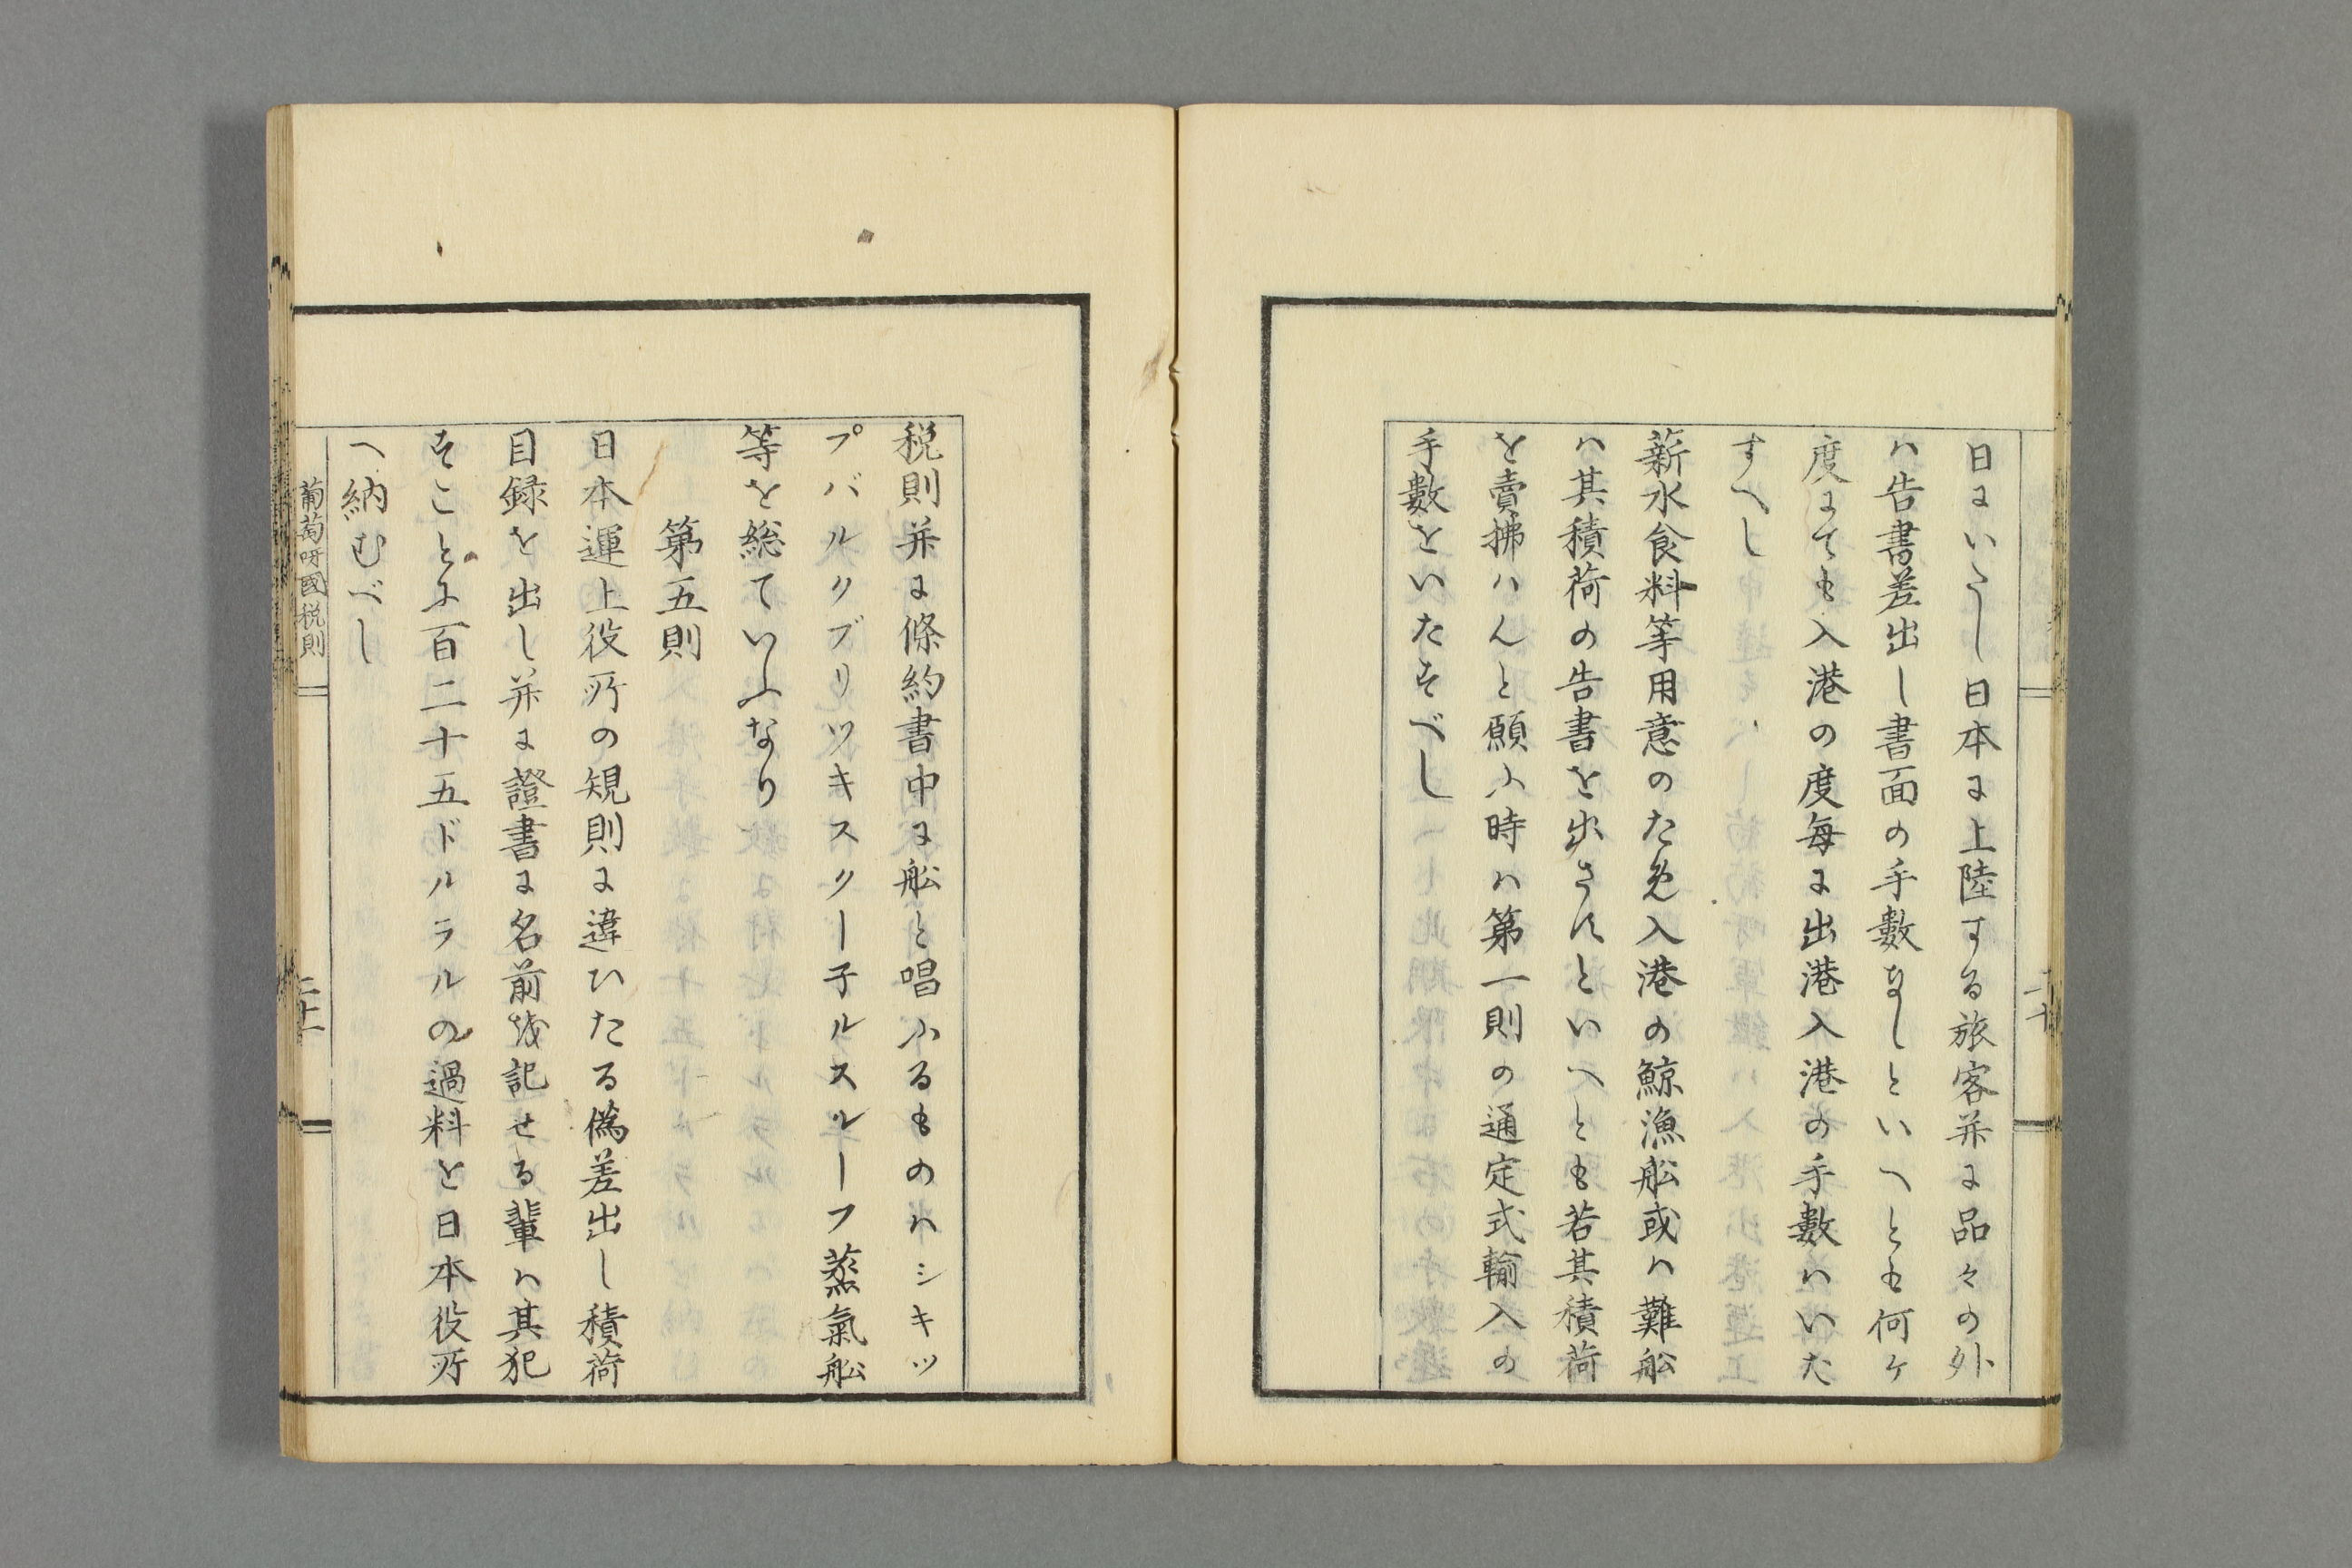 日にいたし日本に上陸する旅客并に品々の外
ハ告書差出し書面の手數なしといへとも何ヶ
度にても入港の度毎に出港入港の手數ハいた
すへし
薪水食料等用意のため入港の鯨漁舩或ハ難舩
ハ其積荷の告書を出さすといへとも若其積荷
を賣拂ハんと願ふ時ハ第一則の通定式輸入の
手數をいたすべし
二十
税則并に條約書中に舩と唱ふるものハシキッ
プバルクブリツキスクー子ルスルーフ蒸氣舩
等を総ていふなり
第五則
日本運上役所の規則に違ひたる偽差出し積荷
目録を出し并に證書に名前を記せる輩ハ其犯
すことに百二十五ドルラルの過料を日本役所
へ納むべし
葡萄呀國税則
二十一